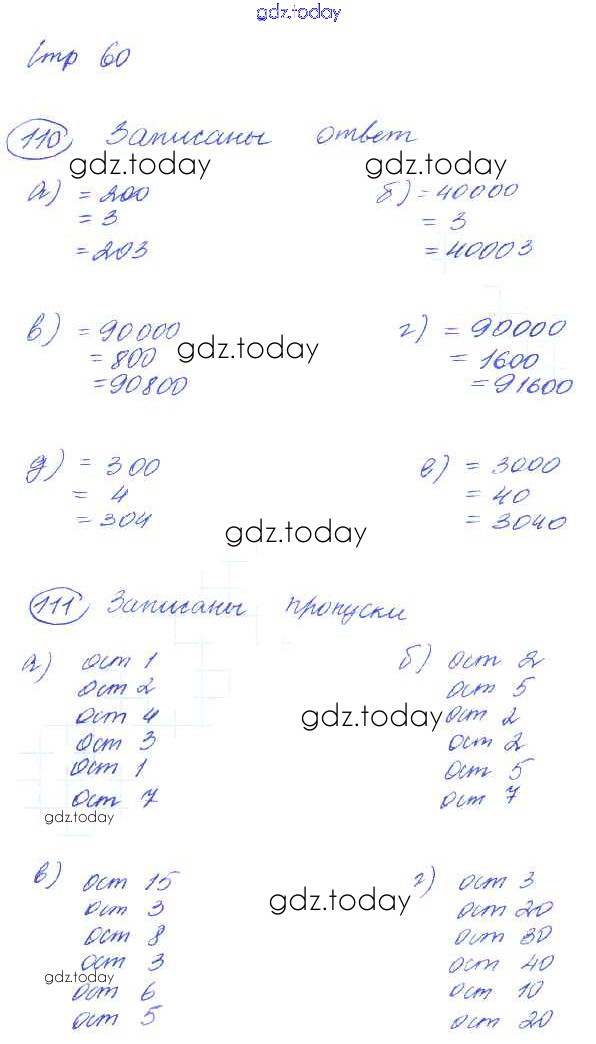 gdz.today
Стр 60
110 Записаны ответ
gdz.today gdz.today
а) = 200 б) = 40000
= 3 = 3
= 203 = 40003
в) = 90000 г) = 90000
= 800 gdz.today = 1600
= 90800 = 91600
д) = 300 е) = 3000
= 4 = 40
= 304 = 3040
gdz.today
111 Записаны пропуски
а) ост 1 б) ост 2
ост 2 ост 5
ост 4 gdz.today ост 2
ост 3 ост 2
ост 1 ост 5
ост 7 ост 7
gdz.today
в) ост 15 г) ост 3
ост 3 gdz.today ост 20
ост 8 ост 30
ост 3 ост 40
gdz.today
ост 6 ост 10
ост 5 ост 20